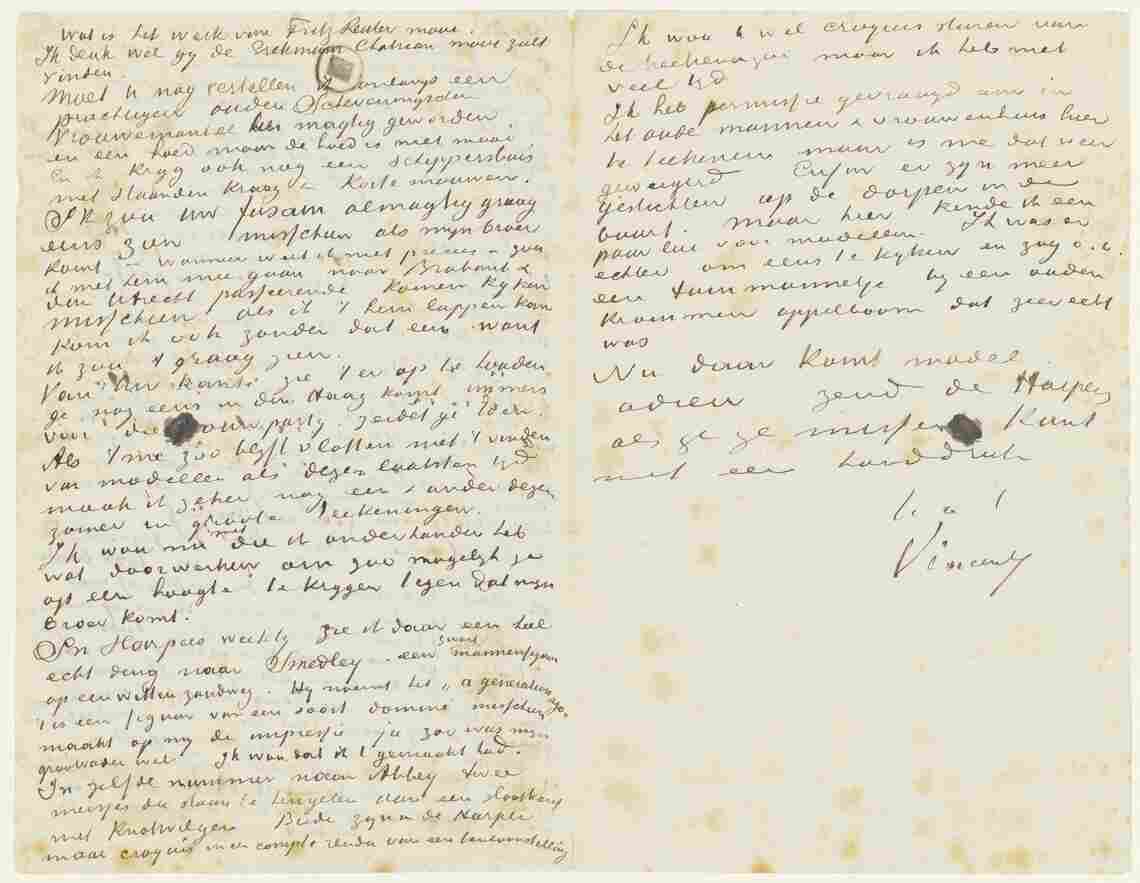 Wat is het werk van Fritz Reuter mooi.
Ik denk wel gy de Erckmann Chatrian mooi zult
vinden.
Moet U nog vertellen ik onlangs een
prachtigen ouden Scheveningschen
vrouwemantel ben magtig geworden
en een hoed maar de hoed is niet mooi
En ik kryg ook nog een schippersbuis
met staanden kraag & korte mouwen.
Ik zou uw fusain almagtig graag
eens zien misschien als mijn broer
komt – wanneer weet ik niet precies – zou
ik met hem meegaan naar Braband &
dan Utrecht passeerende komen kyken
misschien als ik 't hem lappen kan
kom ik ook zonder dat eens want
ik zou 't graag zien.
Van Uw kant zie 't er op te houden
ge nog eens in den Haag komt immers
voor die party zeidet ge toen.
Als 't me zoo blyft vlotten met 't vinden
van modellen als dezen laatsten tyd
maak ik zeker nog een & ander dezen
zomer in groote teekeningen.
Ik wou nu met die ik onderhanden heb
wat doorwerken om zoo mogelyk ze
op een hoogte te krygen tegen dat mijn
broer komt.
In Harpers weekly zie ik daar een heel
echt ding naar Smedley – een zwart mannenfiguur
op een witten zandweg. Hy noemt het „a generation ago.
't is een figuur van een soort dominé misschien
maakt op my de impressie ja zoo was mijn
grootvader wel Ik wou dat ik 't gemaakt had.
In zelfde nummer naar Abbey twee
meisjes die staan te hengelen aan een slootkant
met Knotwilgen Beide zyn in de Harper
maar croquis in een compte rendu van een tentoonstelling
Ik wou U wel croquis sturen van
de teekeningen maar ik heb niet
veel tyd
Ik heb permissie gevraagd om in
het oude mannen & vrouwenhuis hier
te teekenen maar is me dat weer
geweigerd Enfin er zyn meer
gestichten op de dorpen in de
buurt. maar hier kende ik een
paar lui voor modellen. Ik was er
echter om eens te kyken en zag o.a.
een tuinmannetje by een ouden
krommen appelboom dat zeer echt
was
Nu daar komt model.
adieu zend de Harpers
als ge ze missen kunt
met een handdruk
t. à t.
Vincent